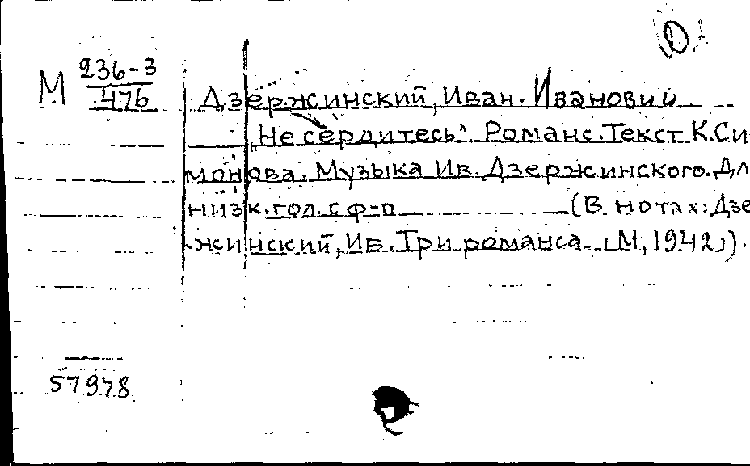 М 236-3
476
Дзержинский, Иван Иванович
„Не сердитесь". Романс. Текст К. Си
монова. Музыка Ив. Дзержинского. Дл
низк. гол. с ф-п (В нотах: Дзе
жинский, Ив. Три романса. [М, 1942]).
57978